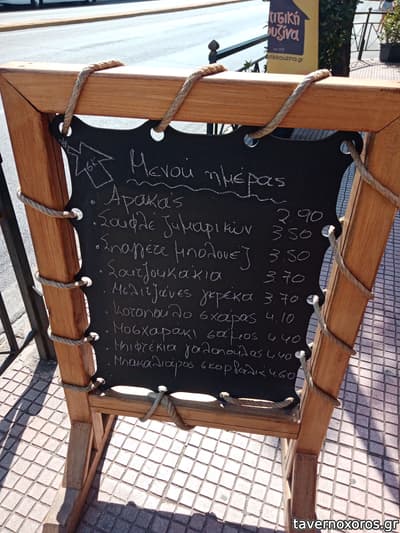 σπιτική
κουζίνα
Μενού ημέρας
• Αρακας 2.90
• Σουφλέ ζυμαρικών 3.50
• Σπαγέτε μπολονεζ 3.50
• Σουτζουκάκια 3.70
• Μελιτζάνες 3.70
• Κοτοπουλο σχάρας 4.10
• Μοσχαρακι 4.40
• Μπιφτέκια γαλοπουλας 4.40
• Μπακαλιάρος σκορδαλια 4.60
www.tavernoxoros.gr